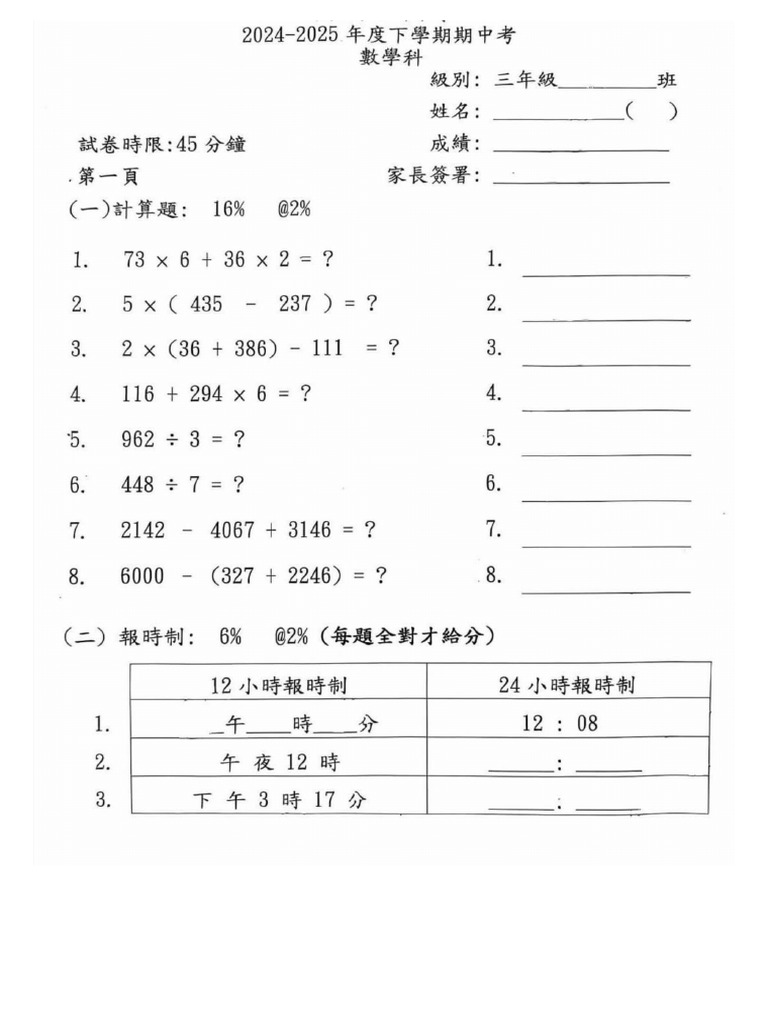 2024-2025 年度下學期期中考
數學科
級別: 三年級_________班
姓名: ____________( )
試卷時限:45 分鐘 成績: ________________
第一頁 家長簽署: ________________
(一)計算題: 16% @2%
1. 73 × 6 + 36 × 2 = ? 1. _______________
2. 5 × ( 435 - 237 ) = ? 2. _______________
3. 2 × (36 + 386) - 111 = ? 3. _______________
4. 116 + 294 × 6 = ? 4. _______________
5. 962 ÷ 3 = ? 5. _______________
6. 448 ÷ 7 = ? 6. _______________
7. 2142 - 4067 + 3146 = ? 7. _______________
8. 6000 - (327 + 2246) = ? 8. _______________
(二) 報時制: 6% @2% (每題全對才給分)
12 小時報時制 24 小時報時制
1. _午____時____分 12 : 08
2. 午 夜 12 時 ______: ______
3. 下 午 3 時 17 分 ______: ______